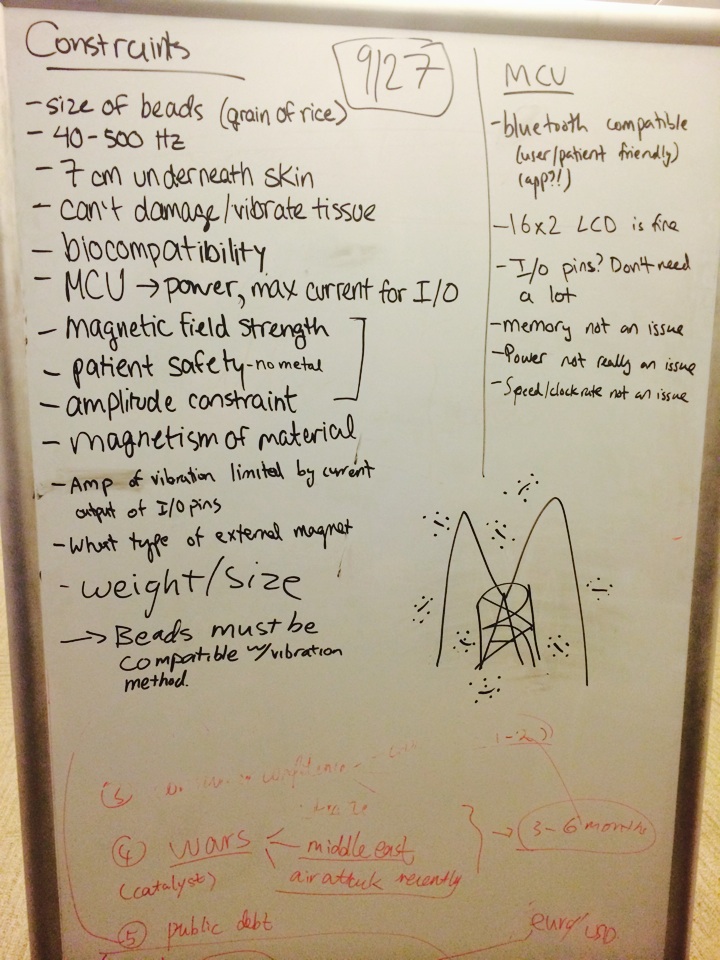 Constraints
9/27
- size of beads (grain of rice)
- 40-500 Hz
- 7 cm underneath skin
- can't damage/vibrate tissue
- biocompatibility
- MCU → power, max current for I/O
- magnetic field strength
- patient safety - no metal
- amplitude constraint
- magnetism of material
- Amp of vibration limited by current
output of I/O pins
- What type of external magnet
- weight/size
→ Beads must be
compatible w/vibration
method.
MCU
- bluetooth compatible
(user/patient friendly)
(app?!)
- 16x2 LCD is fine
- I/O pins? Don't need
a lot
- memory not an issue
- Power not really an issue
- Speed/clock rate not an issue
④ wars
middle east
(catalyst)
air attack recently
→ 3-6 months
⑤ public debt
euro/USD